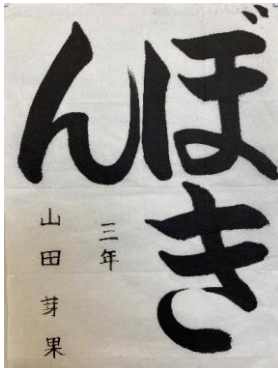 ぼき
ん
三年
山田 芽果